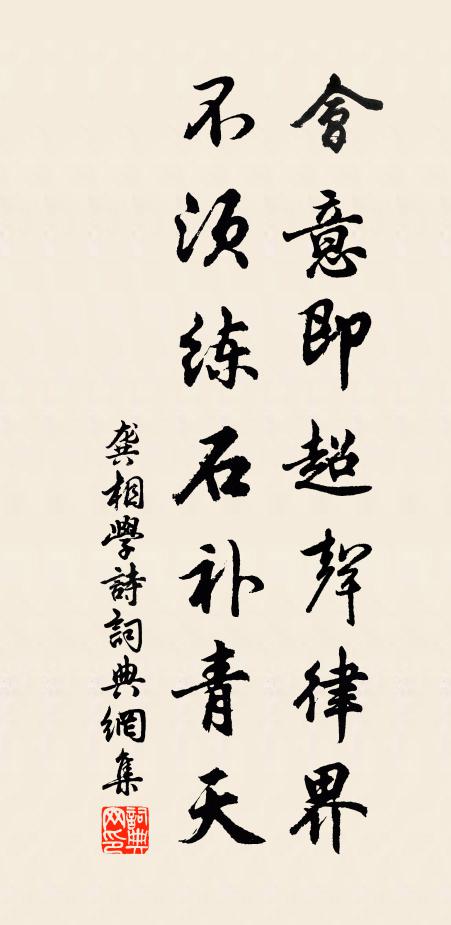 會意即超聲律界
不須练石补青天
龔相學詩詞典網集
詞典網印